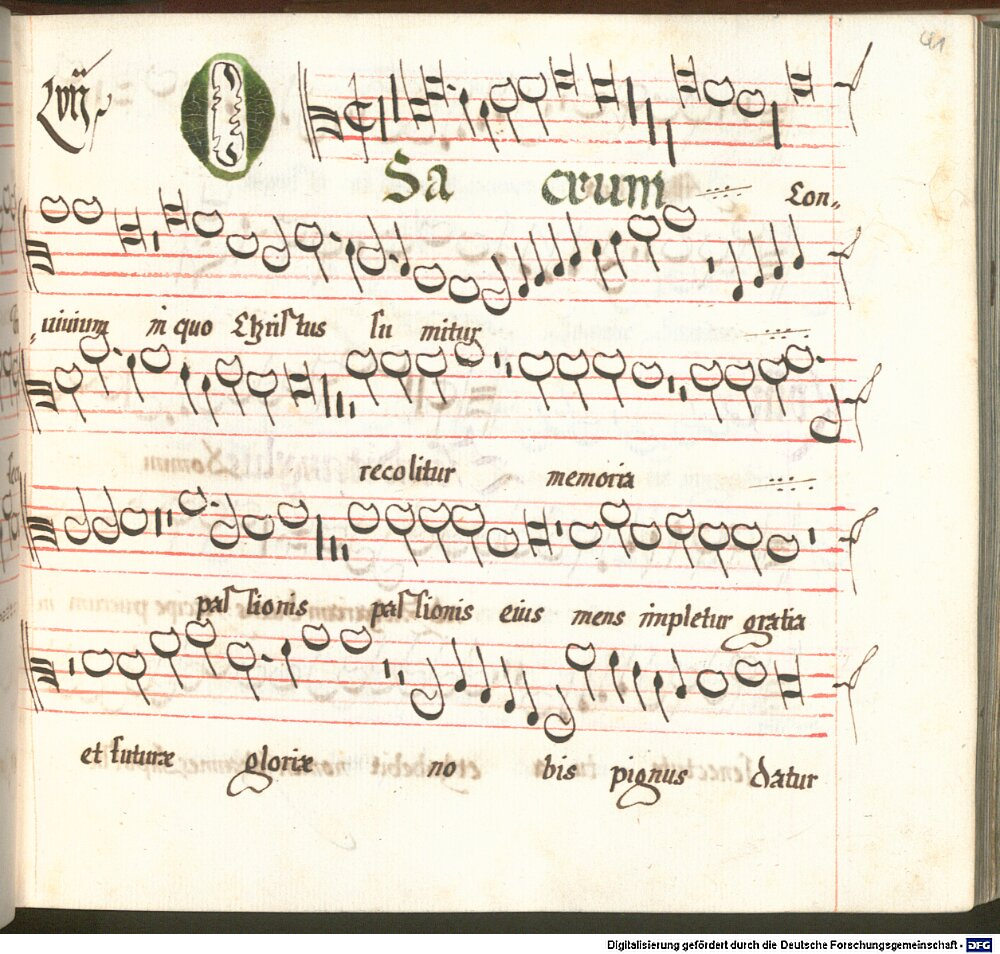 41
Lvij
O
Sacrum Con-
uiuium in quo Christus sumitur
recolitur memoria
passionis passionis eius mens impletur gratia
et futuræ gloriæ nobis pignus datur
Digitalisierung gefördert durch die Deutsche Forschungsgemeinschaft - DFG